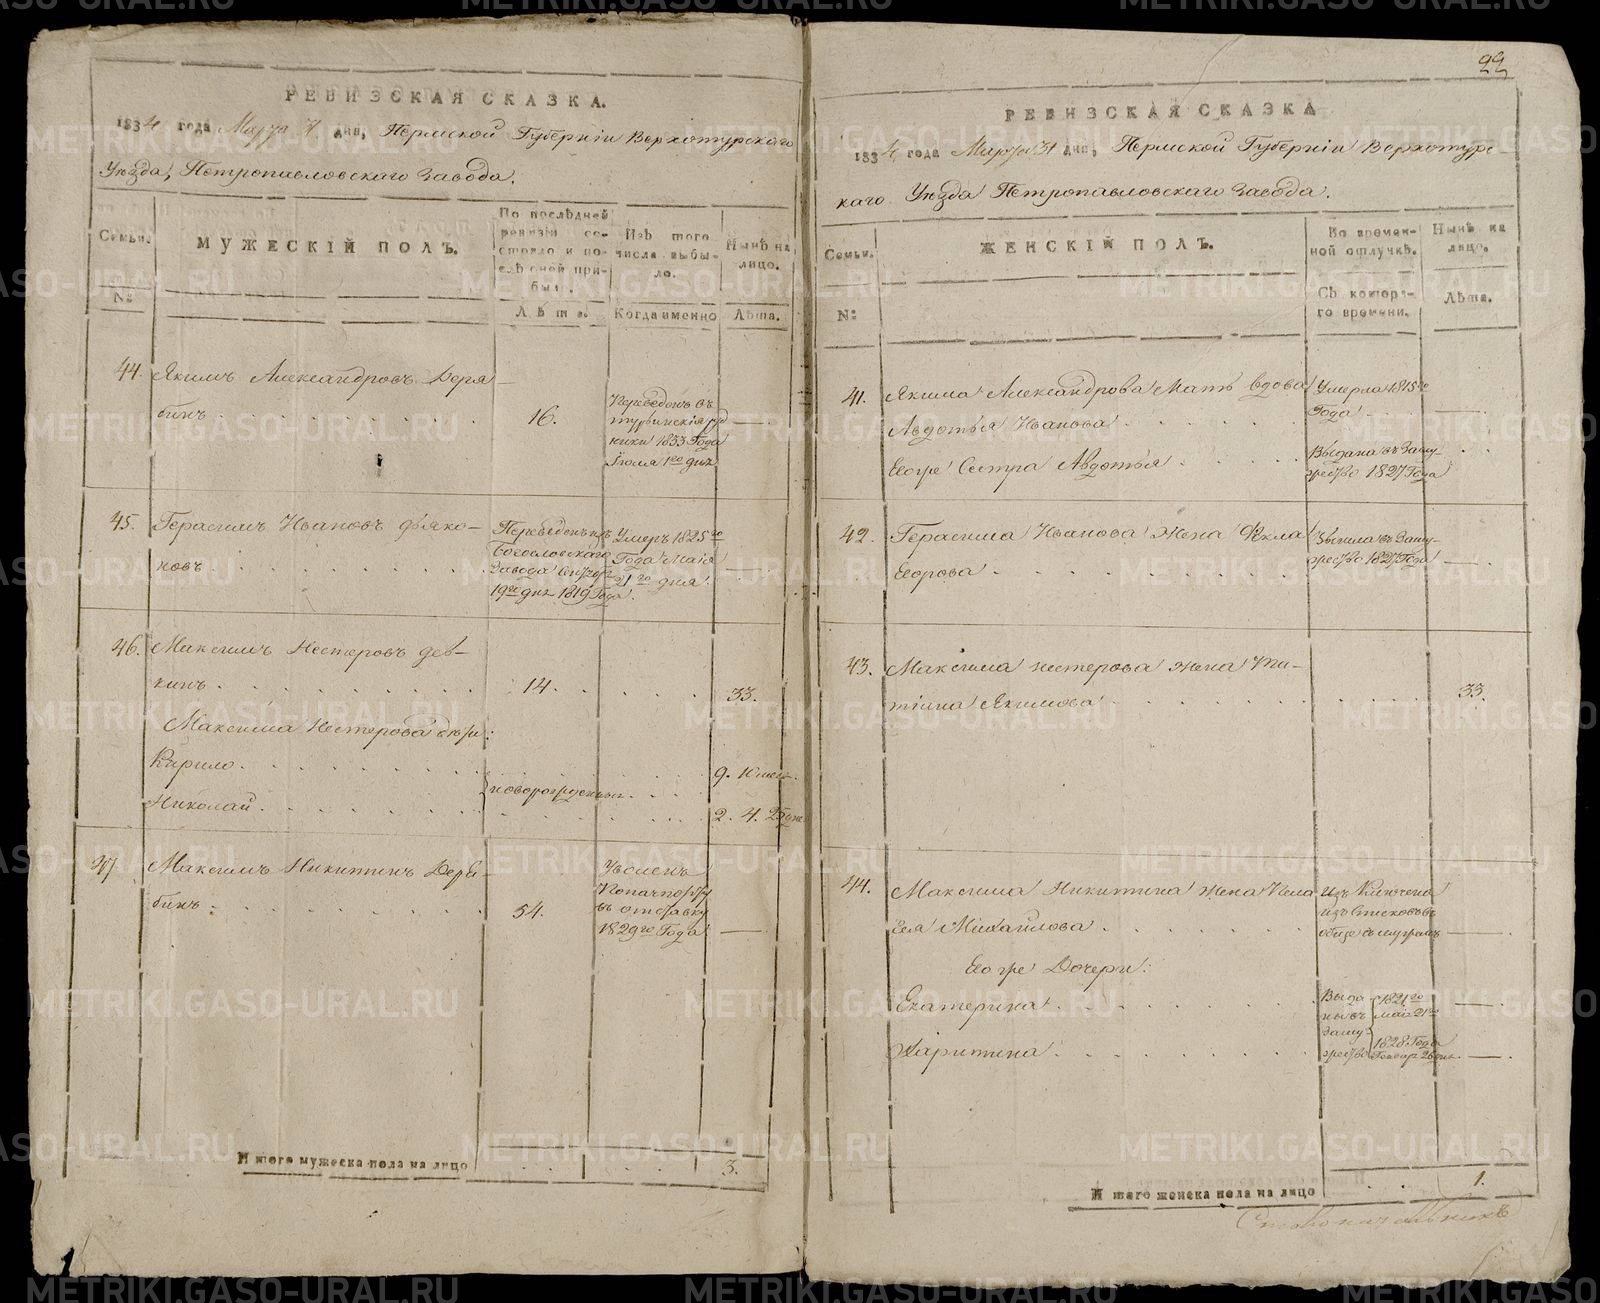 РЕВИЗСКАЯ СКАЗКА.
1834 года Марта 31 дня, Пермской Губерніи Верхотурскаго
Уѣзда, Петропавловскаго Завода.
Семьи.
№
МУЖЕСКІЙ ПОЛЪ.
По послѣдней
ревизіи со-
стояло и по-
слѣ оной при-
был.
Лѣта.
Изъ того
числа выбы-
ло.
Когда именно
Нынѣ на
лицо.
Лѣта.
44. Якимъ Александровъ Деря-
бинъ
16.
Переведенъ въ
турьинскія руд
ники 1833 Года
Іюля 1го дня
45. Герасимъ Ивановъ дьяко-
новъ
Переведенъ изъ
Богословскаго
Завода
19го дня 1819 Года
Умеръ 1825го
Года Маія
21го дня.
46. Максимъ Нестеровъ дев-
кинъ
14.
33.
Максима Нестерова дѣти:
Кирило
Николай
новорожденны
9. 10 мес.
2. 4. 25 дне
47 Максимъ Никитинъ Деря-
бинъ
54.
Уволенъ
въ отставку
1829го Года
Итого мужеска пола на лицо
3.
22
РЕВИЗСКАЯ СКАЗКА
1834 года Марта 31 дня, Пермской Губерніи Верхотурс-
каго Уѣзда Петропавловскаго Завода.
Семьи.
№
ЖЕНСКІЙ ПОЛЪ.
Во времен-
ной отлучкѣ.
Съ котора-
го времени.
Нынѣ на
лицо.
Лѣта.
41. Якима Александрова Мать вдова
Авдотья Иванова
Умерла 1815го
Года
Егоже Сестра Авдотья
Выдана въ Заму-
жество 1827 Года
42. Герасима Иванова Жена Фекла
Егорова
Вышла въ Заму-
жество 1827 Года
43. Максима нестерова жена Та-
тіана Якимова
33.
44. Максима Никитина жена
Михайлова
Изключена
изъ Списковъ
обще съ мужемъ
Егоже Дочери:
Екатерина
Харитина
Выда-
ны въ
Заму-
жество
1821го
Маія 21го
1828 Года
Генвар 26 дня
Итого женска пола на лицо
1.